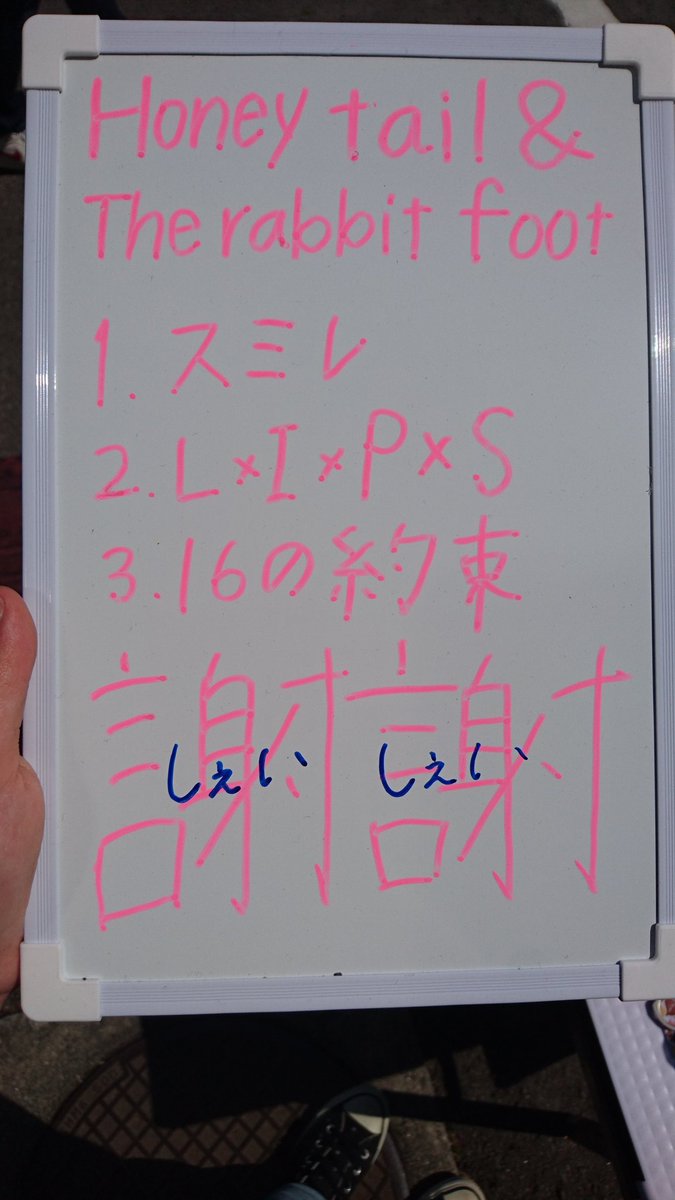 Honey tail &
The rabbit foot
1. スミレ
2. L×I×P×S
3. 16の約束
謝謝
しぇい しぇい